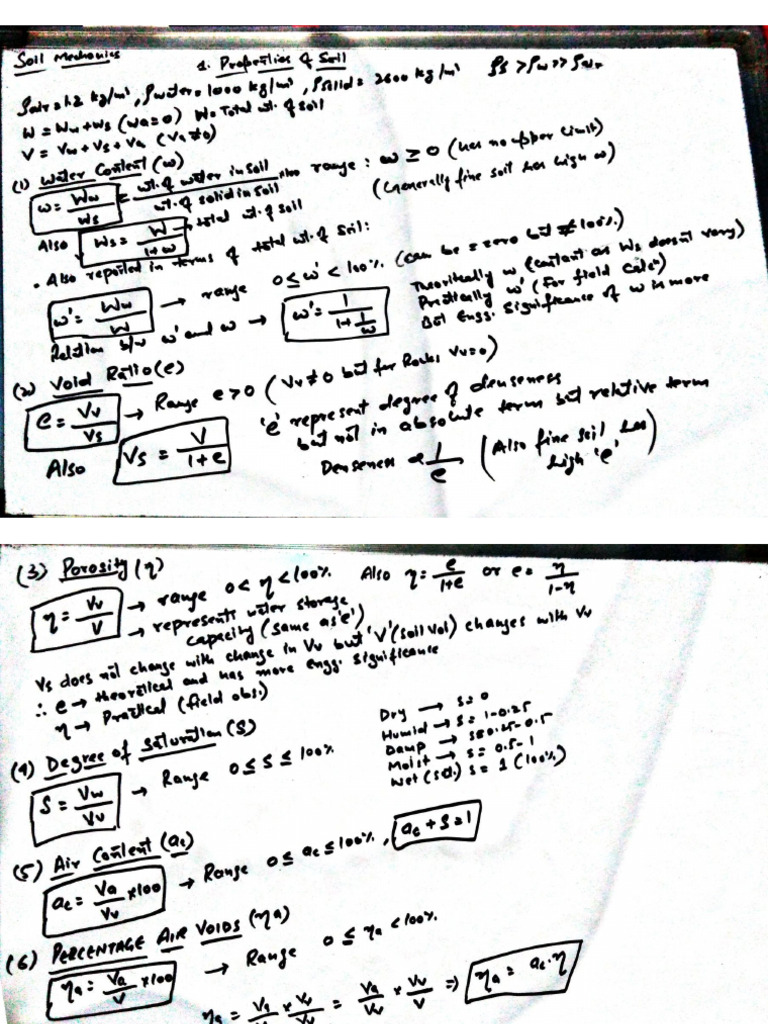 Soil Mechanics
1. Properties of Soil
ρair = 1.2 kg/m³, ρwater = 1000 kg/m³, ρsolid = 2600 kg/m³ ρs > ρw >> ρair
W = Ww + Ws (Wa = 0) W = Total wt. of soil
V = Vw + Vs + Va (Va ≠ 0)
(1) Water Content (w)
w = Ww/Ws = wt. of water in soil / wt. of solid in soil range : w ≥ 0 (has no upper limit)
(Generally fine soil has high w)
Also Ws = W/(1+w) → total wt. of soil
• Also reported in terms of total wt. of soil:
w' = Ww/W → range 0 ≤ w' < 100% (can be = zero but ≠ 100%)
Relation b/w w' and w → w' = 1/(1+1/w)
Theoritically w (constant as Ws doesn't vary)
Practically w' (for field calcn)
But Engg. Significance of w is more
(2) Void Ratio (e)
e = Vv/Vs → Range e > 0 (Vv ≠ 0 but for Rocks Vv = 0)
'e' represent degree of denseness
but not in absolute term but relative term
Also Vs = V/(1+e)
Denseness ∝ 1/e (Also fine soil has high 'e')
(3) Porosity (η)
η = Vv/V → range 0 < η < 100% Also η = e/(1+e) or e = η/(1-η)
→ represents water storage
capacity (same as 'e')
Vs does not change with change in Vv but 'V' (soil vol) changes with Vv
∴ e → theoretical and has more engg. significance
η → Practical (field obs.)
(4) Degree of Saturation (S)
S = Vw/Vv → Range 0 ≤ S ≤ 100%
Dry → S = 0
Humid → S = 1-0.25
Damp → S = 0.25-0.5
Moist → S = 0.5-1
Wet (Sat.) S = 1 (100%)
(5) Air Content (ac)
ac = Va/Vv × 100 → Range 0 ≤ ac ≤ 100%, ac + S = 1
(6) PERCENTAGE AIR VOIDS (ηa)
ηa = Va/V × 100 → Range 0 ≤ ηa < 100%
ηa = Va/V × Vv/Vv = Va/Vv × Vv/V ⇒ ηa = ac.η